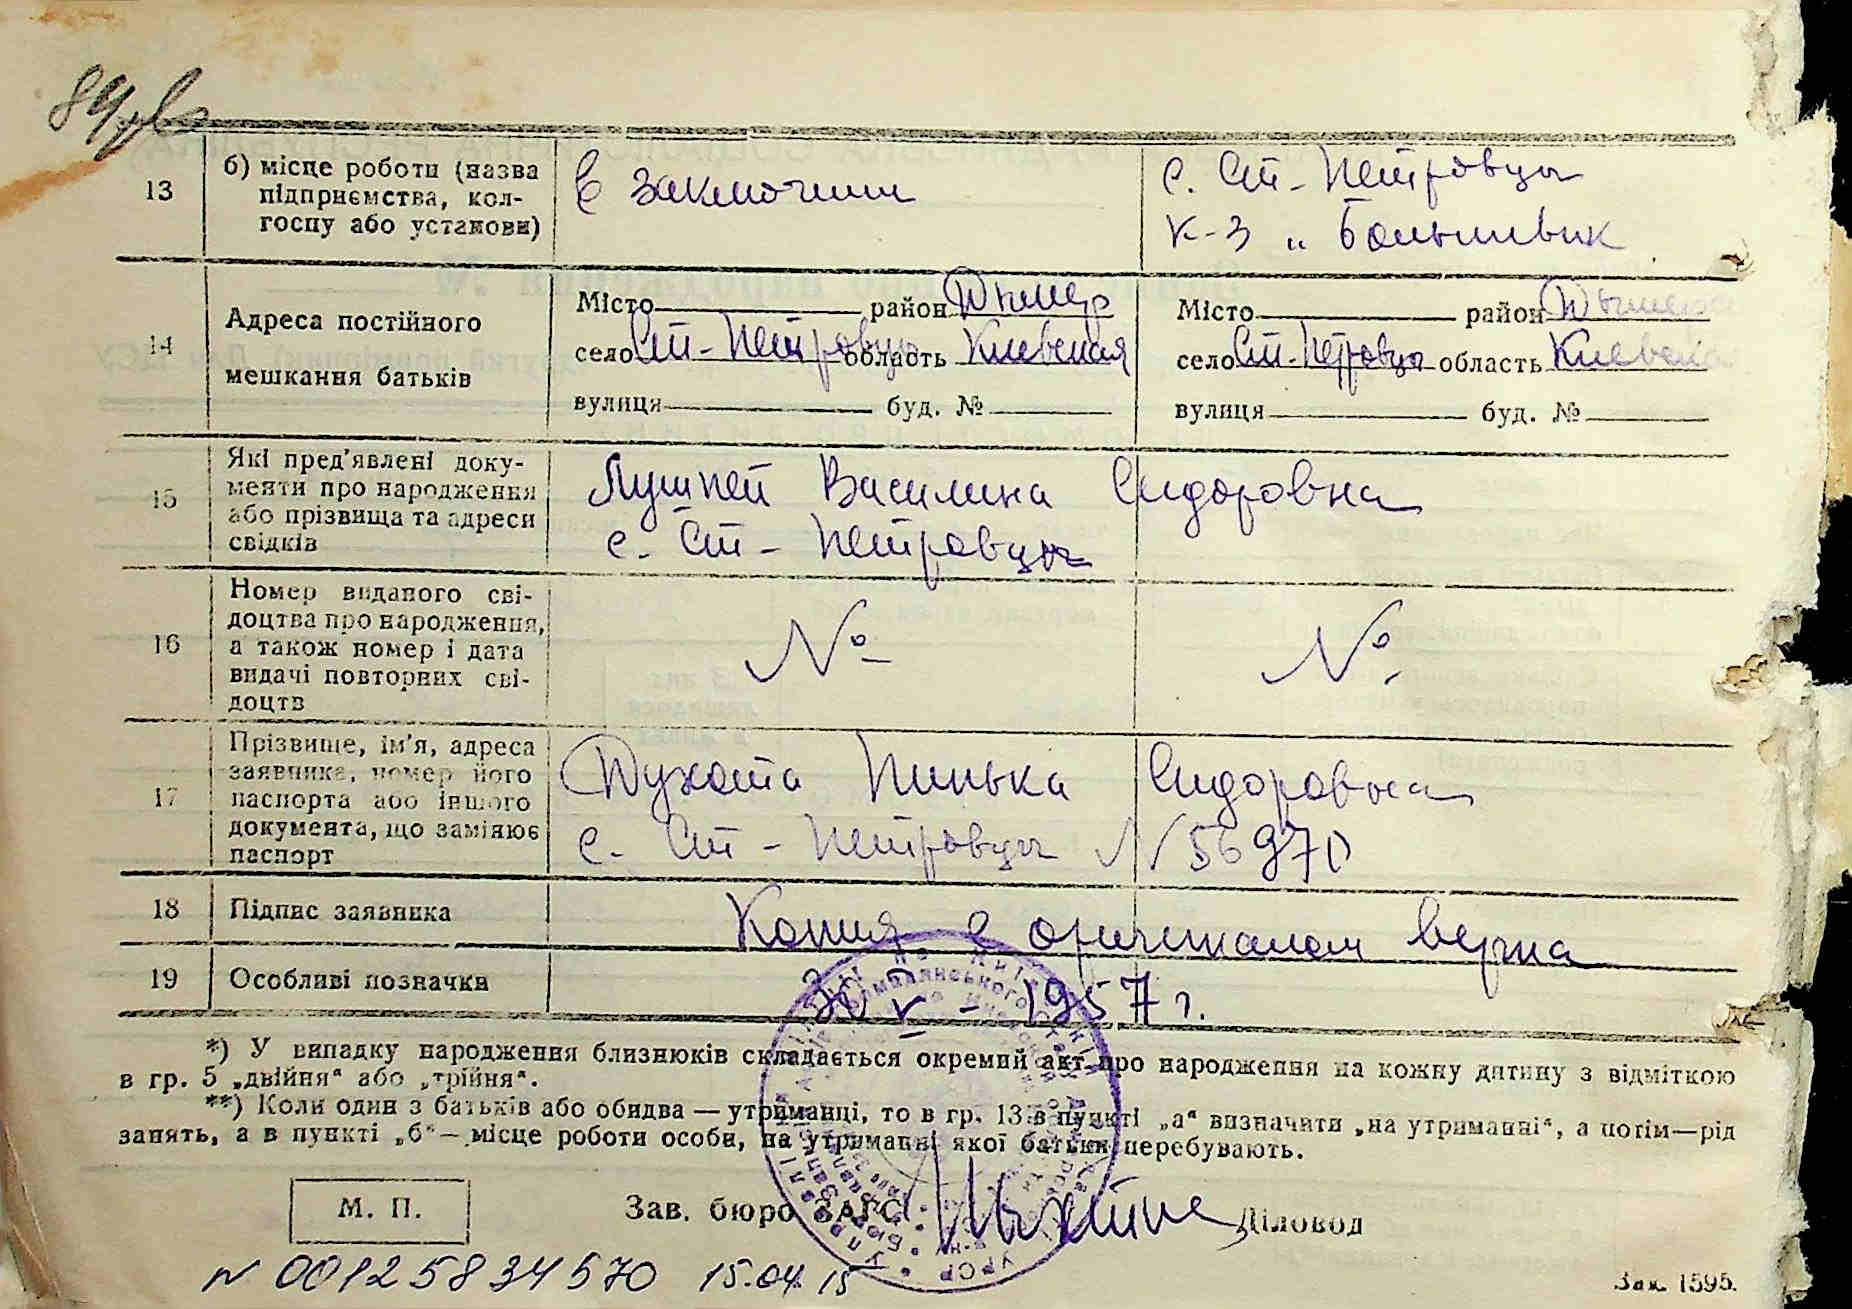 84
13 б) місце роботи (назва підприємства, кол-
госпу або установи)
В заключении
с. Ст-Петровцы
к-з „Большивик
14 Адреса постійного
мешкання батьків
Місто район Дымер
село Ст-Петровцы область Киевская
вулиця буд. №
Місто район Дымер
село Ст-Петровцы область Киевская
вулиця буд. №
15 Які пред'явлені доку-
менти про народження
або прізвища та адреси
свідків
Лушпей Василина Сидоровна
с. Ст-Петровцы
16 Номер виданого сві-
доцтва про народження,
а також номер і дата
видачі повторних сві-
доцтв
№
№
17 Прізвище, ім'я, адреса
заявника, номер його
паспорта або іншого
документа, що замінює
паспорт
Духота Сидоровна
с. Ст-Петровцы N 56970
18 Підпис заявника
Копия с оригиналом верна
19 Особливі позначки
V - 1957 г.
*) У випадку народження близнюків складається окремий акт про народження на кожну дитину з відміткою
в гр. 5 „двійня“ або „трійня“.
**) Коли один з батьків або обидва — утриманці, то в гр. 13 в пункті „а“ визначити „на утриманні“, а потім—рід
занять, а в пункті „б“— місце роботи особи, на утриманні якої батьки перебувають.
М. П.
Зав. бюро ЗАГС
Діловод
N 00125834570 15.04.15
Зак. 1595.